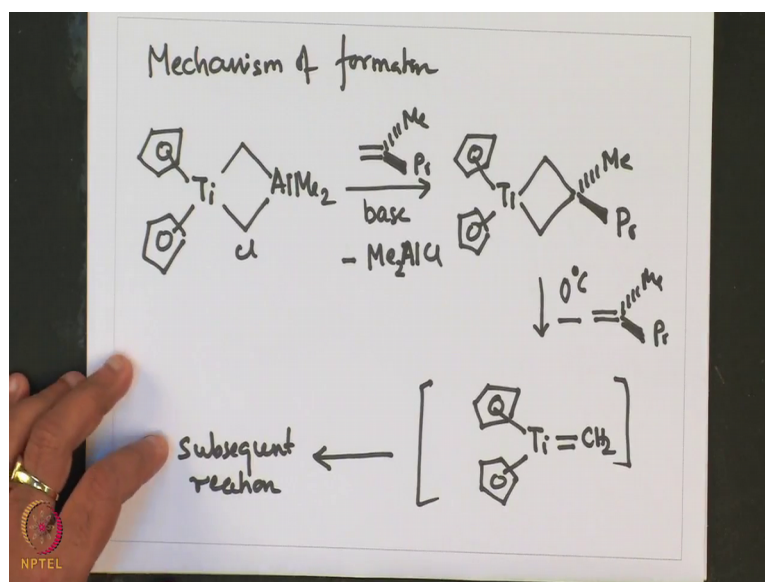 Mechanism of formation
Ti AlMe2 Cl
Me
Pr
base
- Me2AlCl
Ti Me
Pr
0°C
- Me
Pr
Ti=CH2
subsequent
reaction
NPTEL